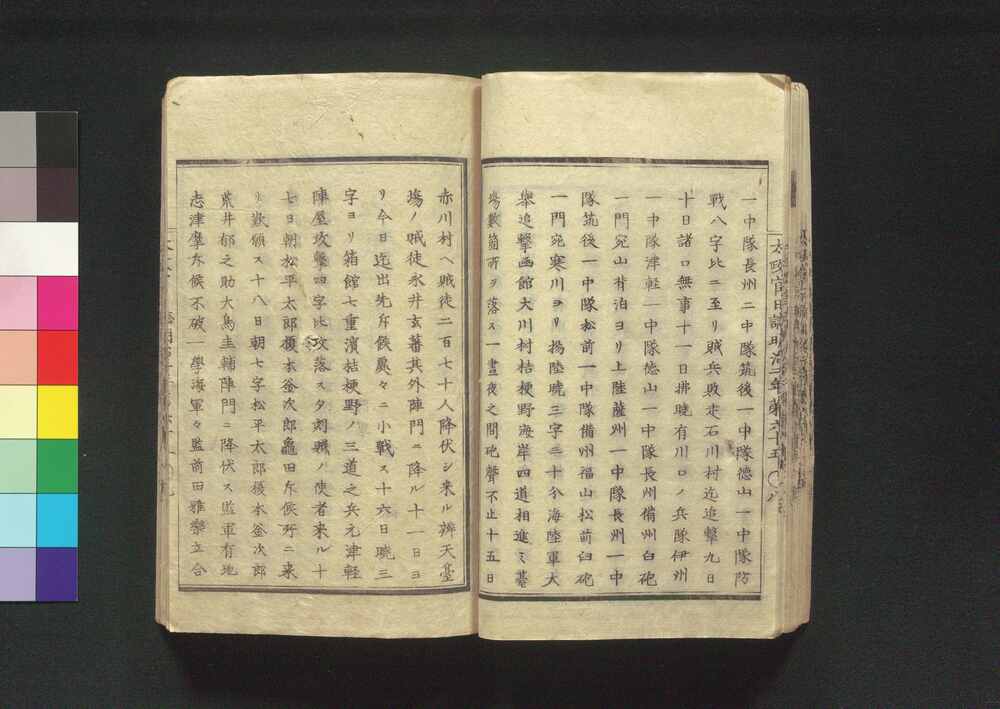 一中隊長州二中隊筑後一中隊德山一中隊防
戰八字比ニ至リ賊兵敗走石川村迄追擊九日
十日諸口無事十一日拂曉有川口ノ兵隊伊州
一中隊津輕一中隊德山一中隊長州備州臼砲
一門宛山背泊ヨリ上陸薩州一中隊長州一中
隊筑後一中隊松前一中隊備州福山松前臼砲
一門宛寒川ヨリ揚陸曉三字三十分海陸軍大
擧追擊函館大川村桔梗野海岸四道相進ミ臺
塲數箇所ヲ落ス一晝夜之間砲聲不止十五日
赤川村ヘ賊徒二百七十人降伏シ来ル辨天臺
塲ノ賊徒永井玄蕃其外陣門ニ降ル十一日ヨ
リ今日迄出先斥候處々ニ小戰ス十六日曉三
字ヨリ箱館七重濱桔梗野ノ三道之兵元津輕
陣屋攻擊四字比攻落ス夕刻賊ノ使者来ル十
七日朝松平太郎榎本釜次郎龜田斥候所ニ来
リ歎願ス十八日朝七字松平太郎榎本釜次郎
荒井郁之助大鳥圭輔陣門ニ降伏ス監軍有地
志津摩斥候不破一學海軍々監前田雅樂立合
太政官日誌明治二年第六十五 〇八